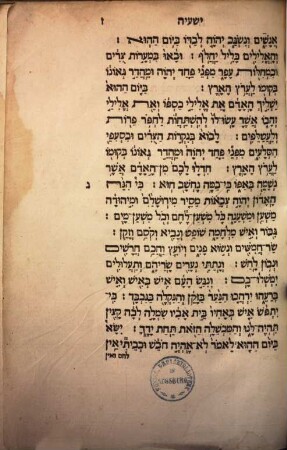 ישעיה ז
אנשים ונשגב יהוה לבדו ביום ההוא:
והאלילים כליל יחלף: ובאו במערות צרים
ובמחלות עפר מפני פחד יהוה ומהדר גאונו
בקומו לערץ הארץ: ביום ההוא
ישליך האדם את אלילי כספו ואת אלילי
זהבו אשר עשו לו להשתחות לחפר פרות
ולעטלפים: לבוא בנקרות הצרים ובסעפי
הסלעים מפני פחד יהוה ומהדר גאונו בקומו
לערץ הארץ: חדלו לכם מן האדם אשר
נשמה באפו כי במה נחשב הוא: כי הנה
ג
האדון יהוה צבאות מסיר מירושלם ומיהודה
משען ומשענה כל משען לחם וכל משען מים:
גבור ואיש מלחמה שופט ונביא וקסם וזקן:
שר חמשים ונשוא פנים ויועץ וחכם חרשים
ונבון לחש: ונתתי נערים שריהם ותעלולים
ימשלו בם: ונגש העם איש באיש ואיש
ברעהו ירהבו הנער בזקן והנקלה בנכבד: כי
יתפש איש באחיו בית אביו שמלה לכה קצין
תהיה לנו והמכשלה הזאת תחת ידך: ישא
ביום ההוא לאמר לא אהיה חבש ובביתי אין
לחם ואין